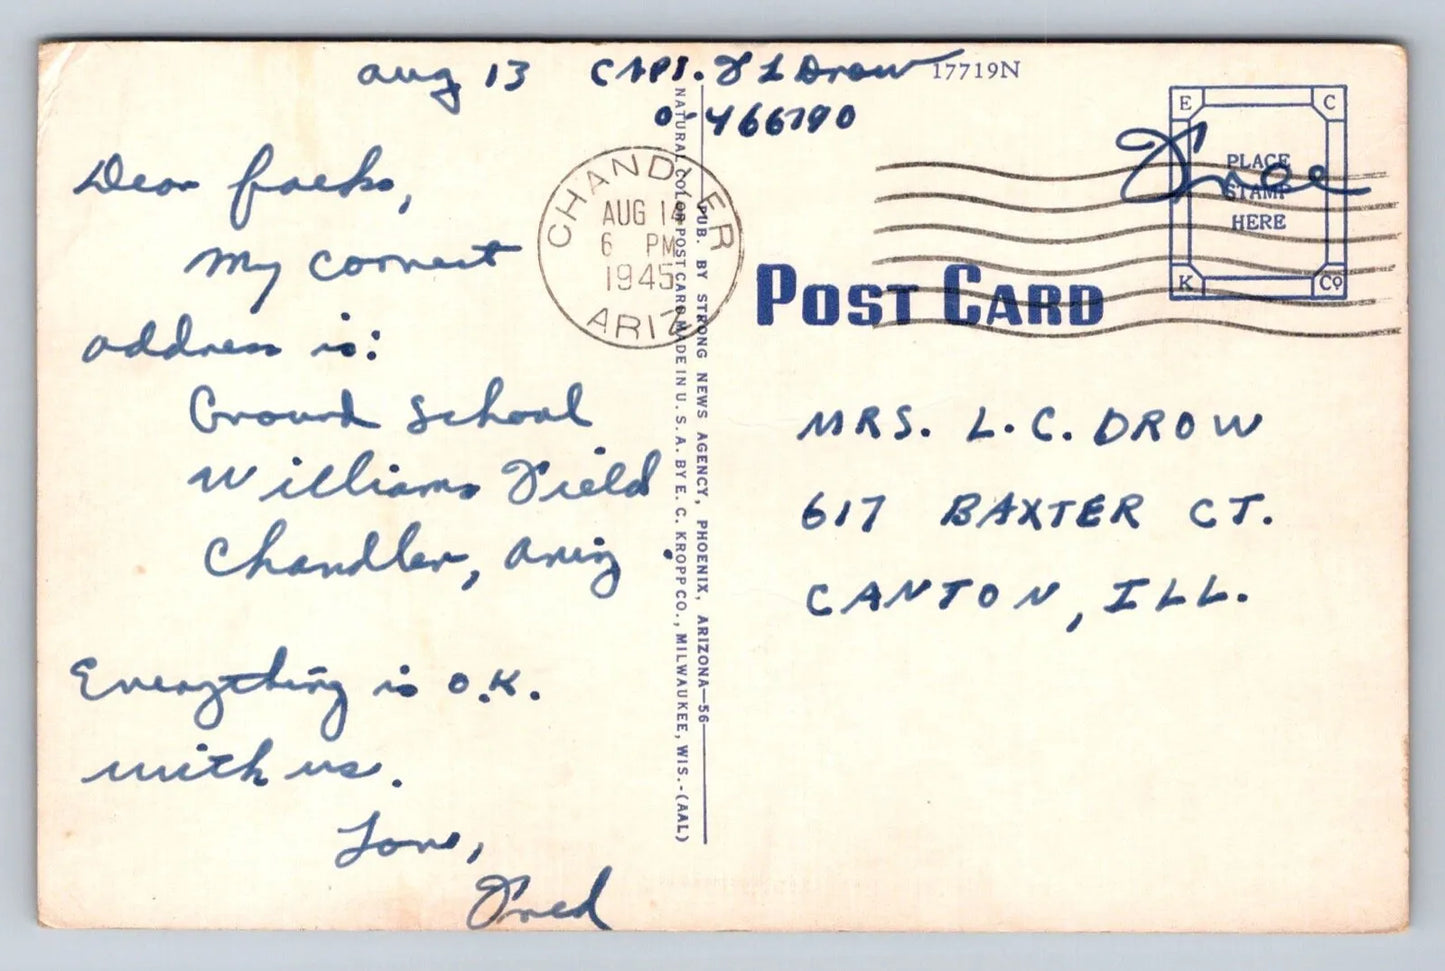 Aug 13
Capt. F L Drow
O-466790
17719N
Dear folks,
My correct
address is:
Ground School
Williams Field
Chandler, Ariz.
Everything is O.K.
with us.
Love,
Fred
CHANDLER
AUG 14
6 PM
1945
ARIZ
NATURAL COLOR POST CARD MADE IN U. S. A. BY E. C. KROPP CO., MILWAUKEE, WIS.-(AAL)
PUB. BY STRONG NEWS AGENCY, PHOENIX, ARIZONA—56
POST CARD
Free
E C
PLACE
STAMP
HERE
K Co
MRS. L.C. DROW
617 BAXTER CT.
CANTON, ILL.